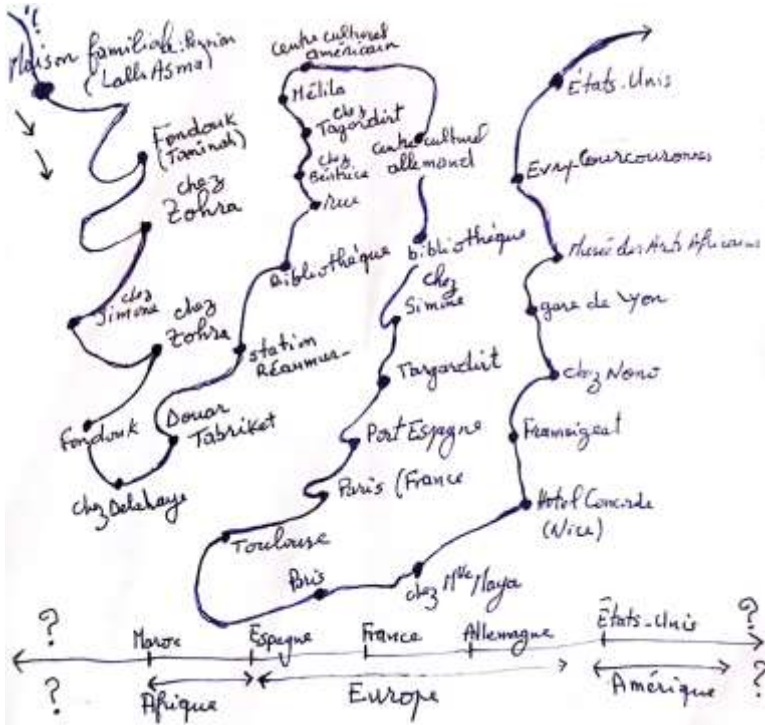 ?
Maison familiale
(Lalla Asma)
Fondouk
(Taninah)
chez
Zohra
chez
Simone
chez
Zohra
Fondouk
chez Delahaye
Douar
Tabriket
station
Réaumur
Bibliothèque
rue
chez
Béatrice
chez
Tagardirt
Mélila
Centre culturel
américain
centre culturel
allemand
bibliothèque
chez
Simone
Tagardirt
Port Espagne
Paris (France
Toulouse
Paris
chez Mlle Maya
Hôtel Concorde
(Nice)
chez Nono
gare de Lyon
Musée des Arts Africains
Evry-Courcouronnes
États-Unis
? Maroc Espagne France Allemagne États-Unis ?
? Afrique Europe Amérique ?